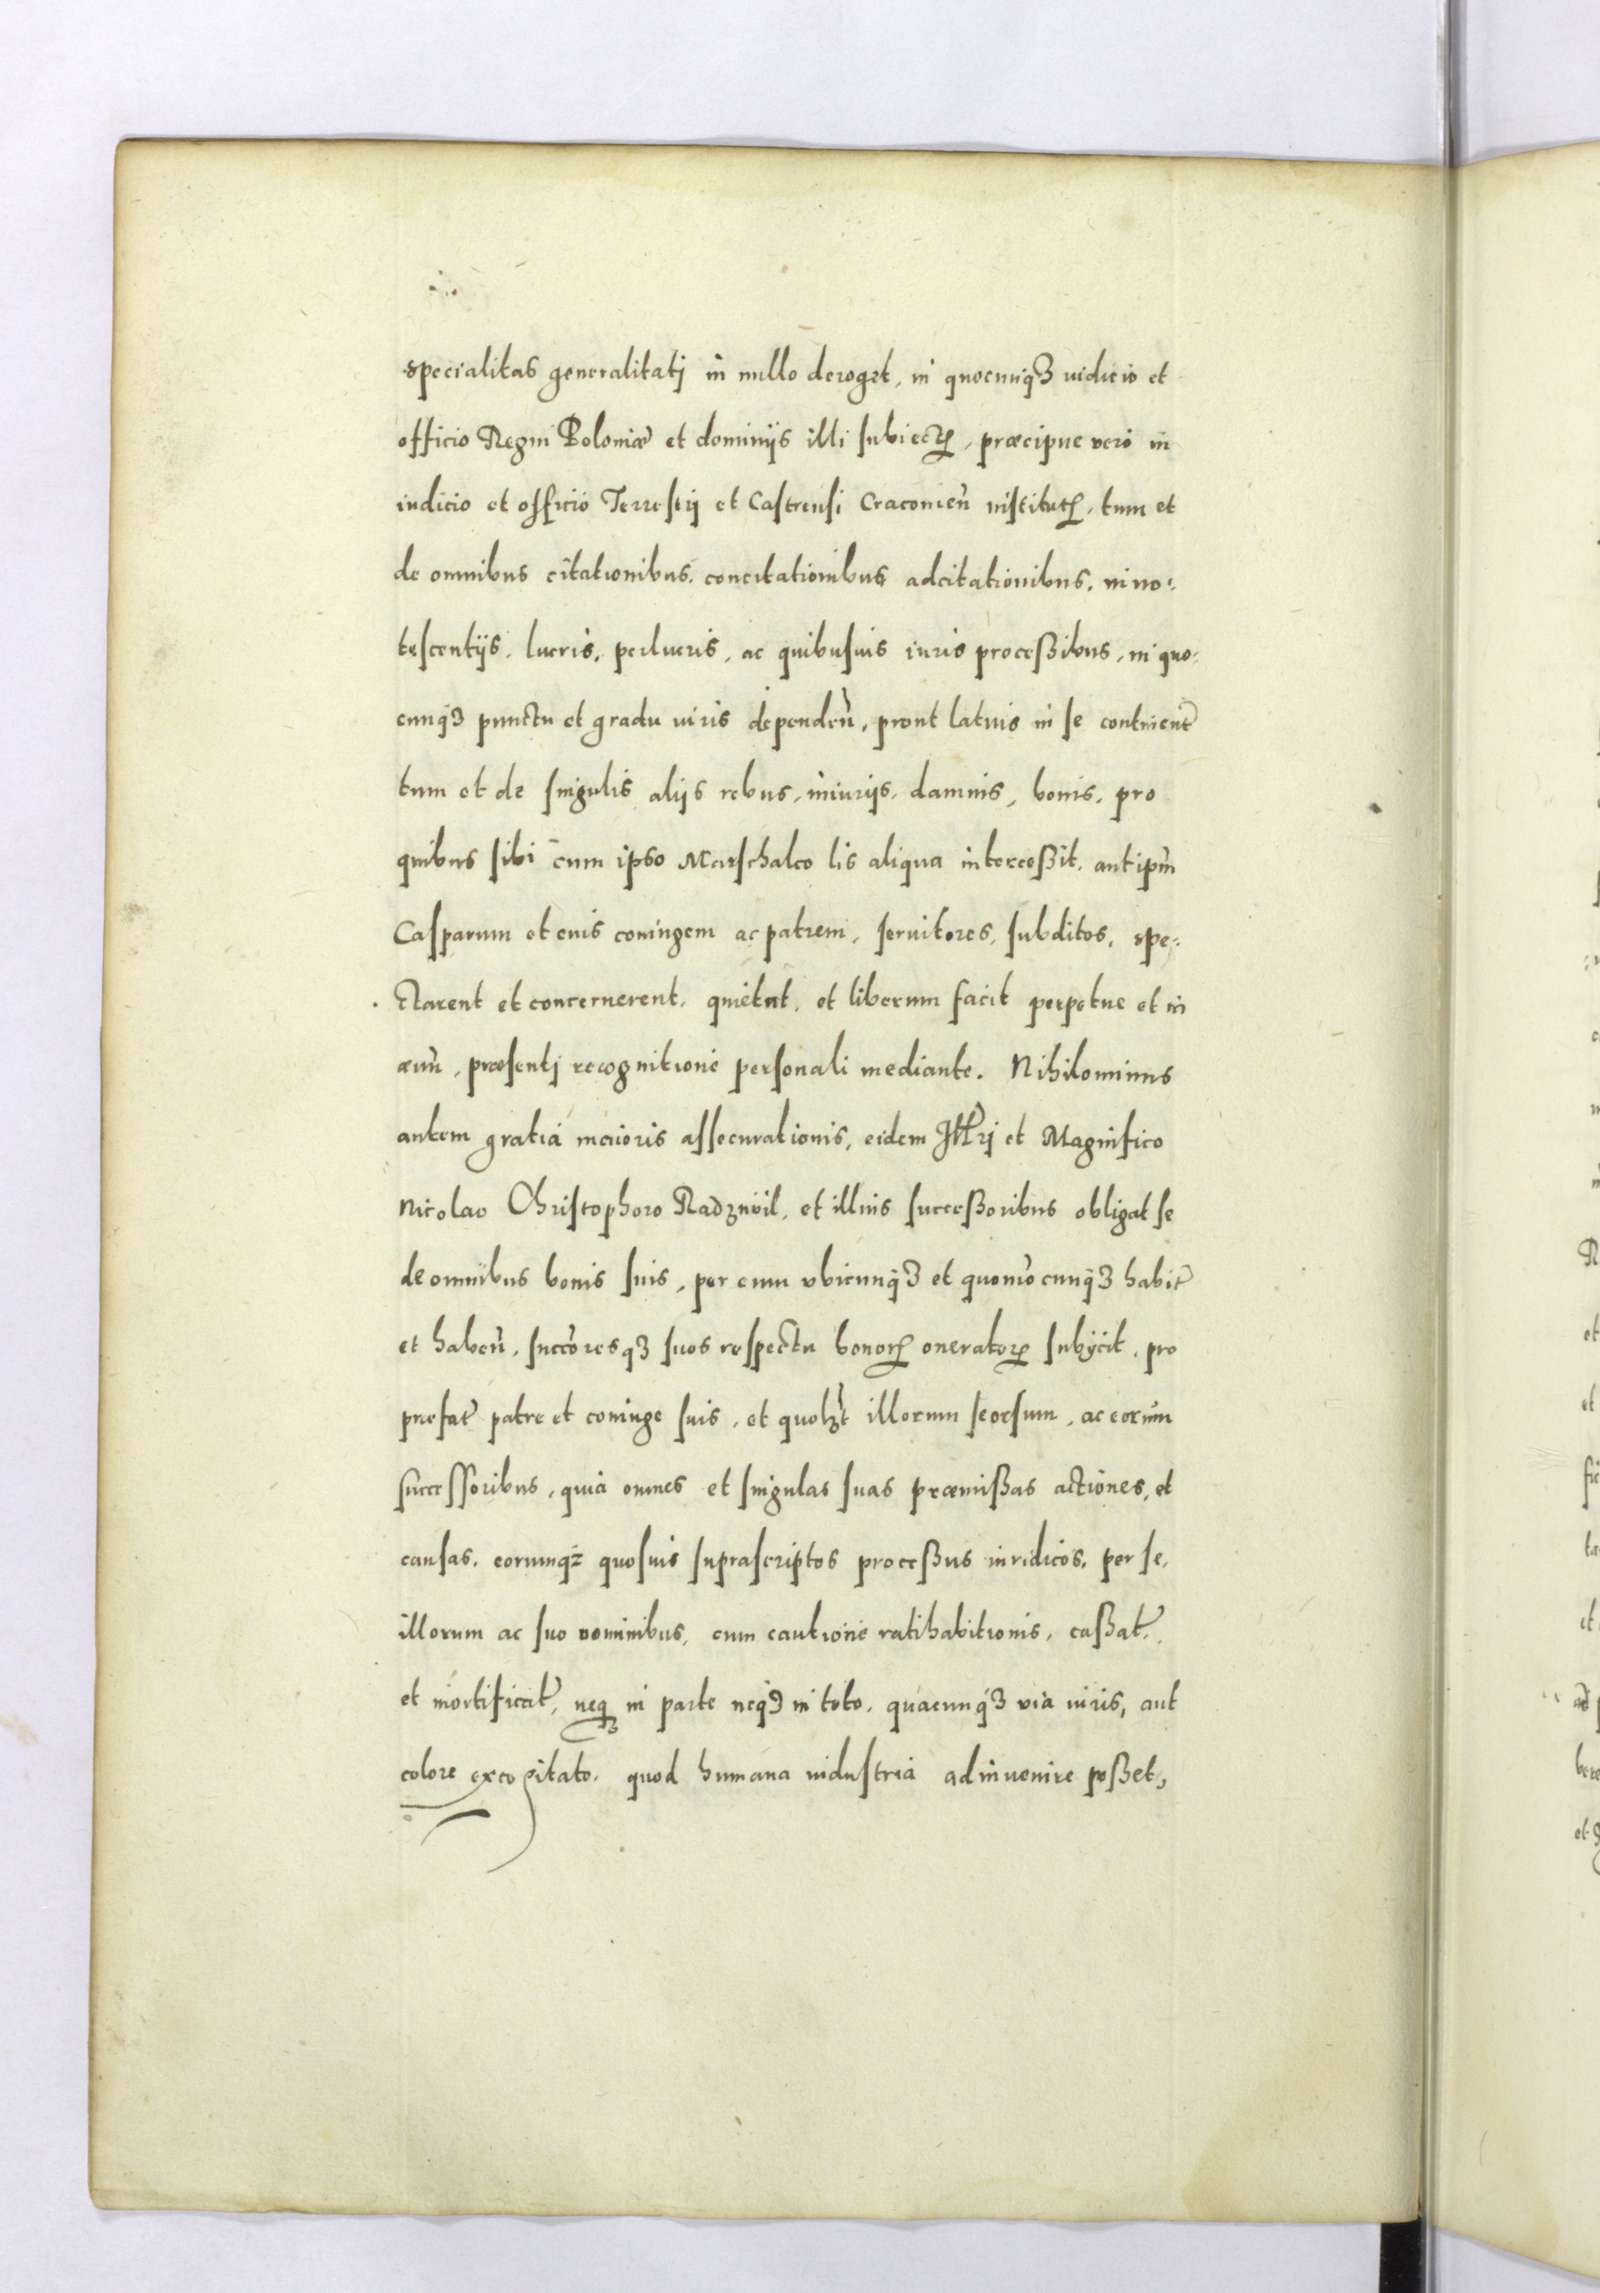 specialitas generalitatj in nullo deroget, in quocunqꝫ iudicio et
officio Regni Poloniæ et dominijs illi subiectꝭ, præcipue vero in
iudicio et officio Terrestrj et Castrensi Cracouień institutꝭ, tum et
de omnibus citationibus, concitationibus adcitationibus, inno⸗
tescentijs, lucris, perlucris, ac quibusuis iuris proceßibus, in quo⸗
cunqꝫ punctu et gradu iuris dependeñ, prout latius in se continent̃
tum et de singulis alijs rebus, iniurijs, damnis, bonis, pro
quibus sibi cum ipso Marschalco lis aliqua interceßit, aut ipm̃
Casparum et eius coniugem ac patrem, seruitores, subditos, spe⸗
ctarent et concernerent, quietat, et liberum facit perpetue et in
æuũ, præsentj recognitione personali mediante. Nihilominus
autem gratia maioris assecurationis, eidem Illr̃j et Magnifico
Nicolao Christophoro Radziwil, et illius succeßoribus obligat se
de omnibus bonis suis, per eum vbicunqꝫ et quomõcunqꝫ habit̃
et habeñ, succõresqꝫ suos respectu bonorꝭ oneratorꝭ subijcit, pro
præfat̃ patre et coniuge suis, et quolꝫt illorum seorsum, ac eorum
successoribus, quia omnes et singulas suas præmißas actiones, et
causas, eorumqꝫ quosuis suprascriptos proceßus iuridicos, per se,
illorum ac suo nominibus, cum cautione ratihabitionis, caßat̃,
et mortificat̃, neqꝫ in parte neqꝫ in toto, quacunqꝫ via iuris, aut
colore excogitato, quod humana industria adinuenire poßet,